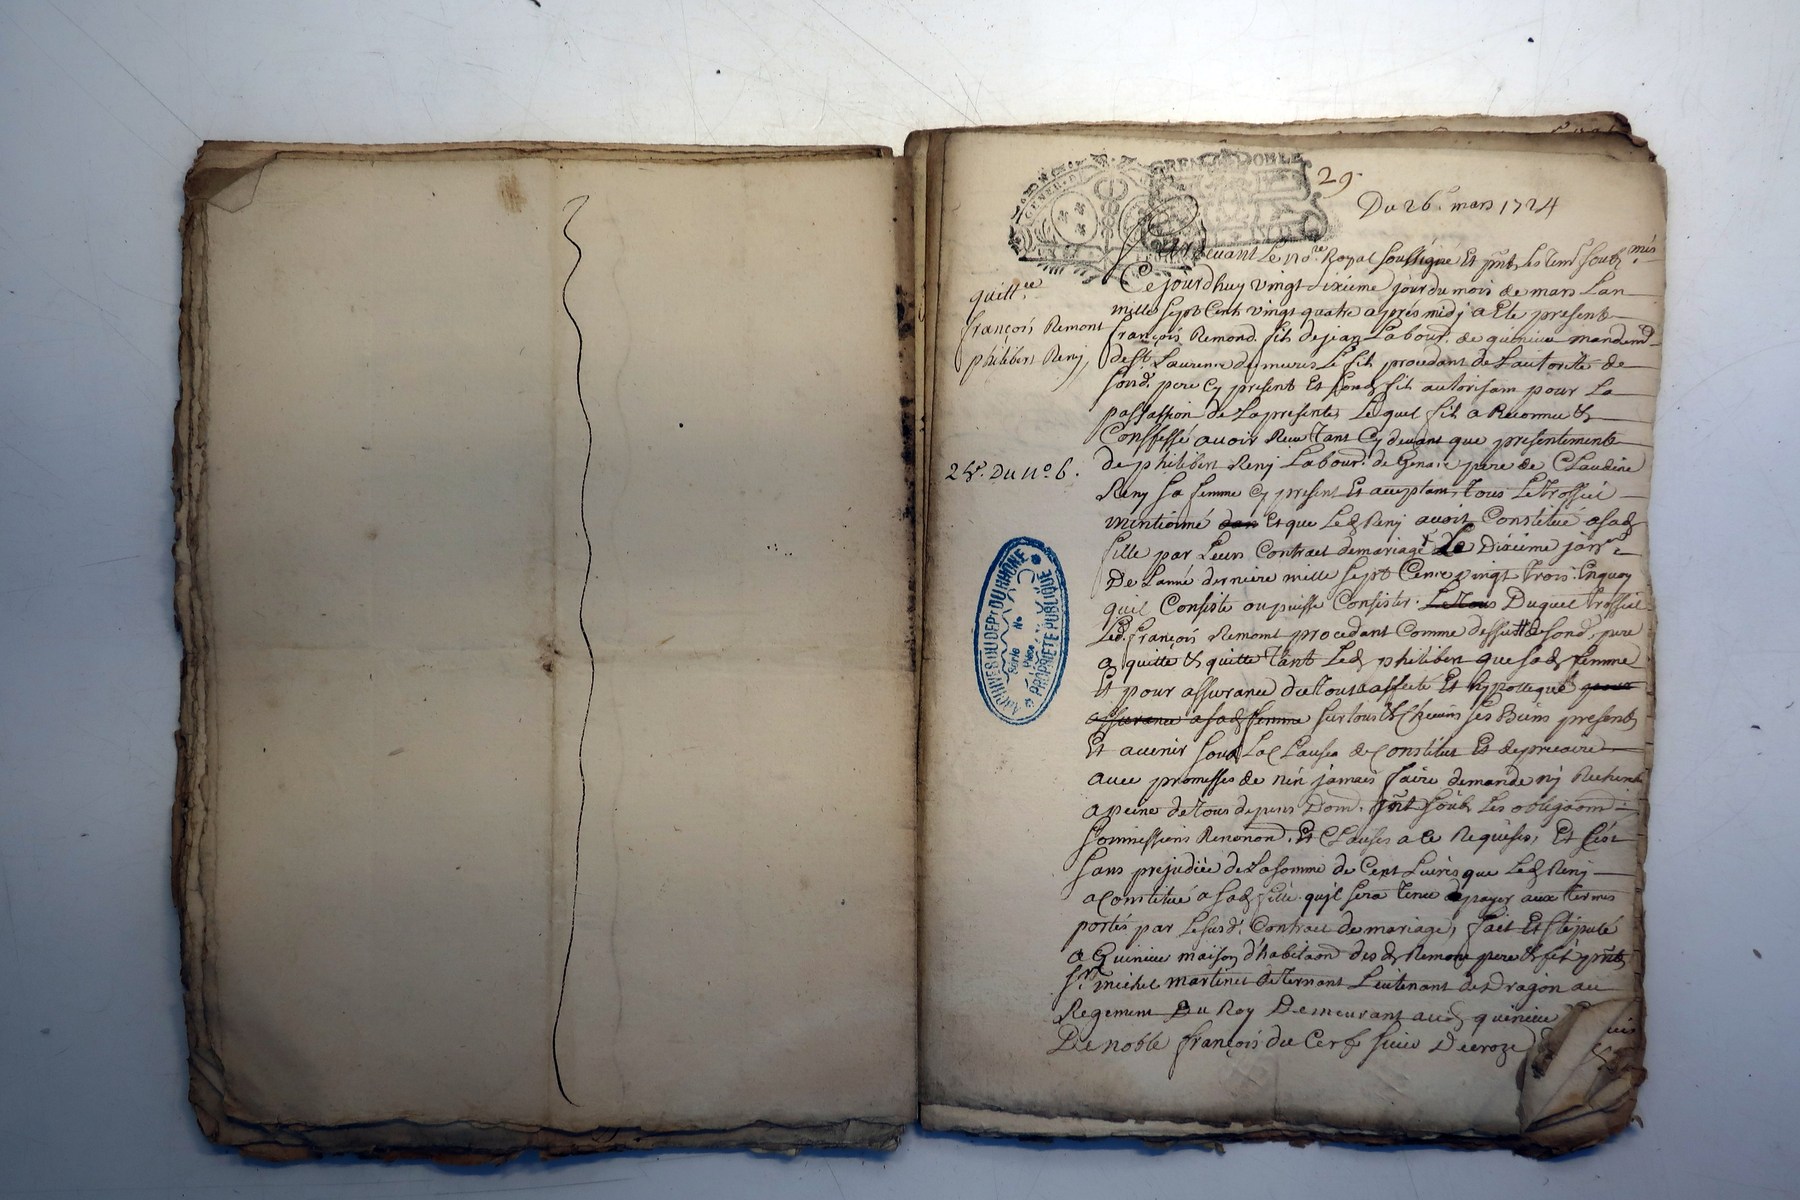 GRENOBLE
GENER. D
29
Du 26e mars 1724
Pardevant Le no.re Royal soussigné Et pñt les tem. soub
més
Ce jourdhuy vingt sixieme jour du mois de mars Lan
mille Sept Cent vingt quatre aprés midj a Eté present
françois Remond fils de jean Labour. de quinieu mandem.
de St. Laurent de mures Le fils procedant de Lautorité de
sond. pere Cy present Et fils autorisam pour La
passassion de La presente, Lequel fils a Reconnu &
Confessé avoir Reçu Tant Cy devant que presentement
de philibert Renj Labour. de Genas pere de Claudine
Reny Sa femme Cy present Et acceptam, Tous Le Trossiel
mentionné dan Et que Led Renj avoit Constitué a sad
fille par Leur Contract de mariage Le Dixieme janv.
De Lanné derniere mille Sept Cent vingt trois. Enquoy
quil Consiste ou puisse Consister. Duquel Trossiel
Led. françois Remont procedant Comme dessus & de sond. pere
a quitté & quitte Tant Led philibert que sad femme
Et pour assurance du Tout a affecté Et hypotequé pour
assurance a sad femme sur tous & Chacuns ses Biens presents
Et avenir sous La Clause de Constitut Et de precaire
avec promesses de nen jamais faire demande nj Recherche
a peine de Tous depens Dom. soub Les obligaōns
Sommissions Renonōn. Et Clauses a Ce Requises, Et C'est
Sans prejudice de La somme de Cent Livres que Led Renj
a Constitué a sad fille quil sera tenu de payer aux termes
portés par Le susd. Contract de mariage, fait Et stipulé
a Quinieu maison d'habitaōn desd Remont pere & fils pñts
Sr. michel martinet de Ternant Lieutenant de Dragon au
Regement Du Roy Demeurant aud quinieu
De noble françois du Cerf sieur Decroze
quitt.ce
françois Remont
philibert Renj
2 #. Du no 6.
ARCHIVES DU DEPt DU RHÔNE
Série
No
Pièce
PROPRIÉTÉ PUBLIQUE